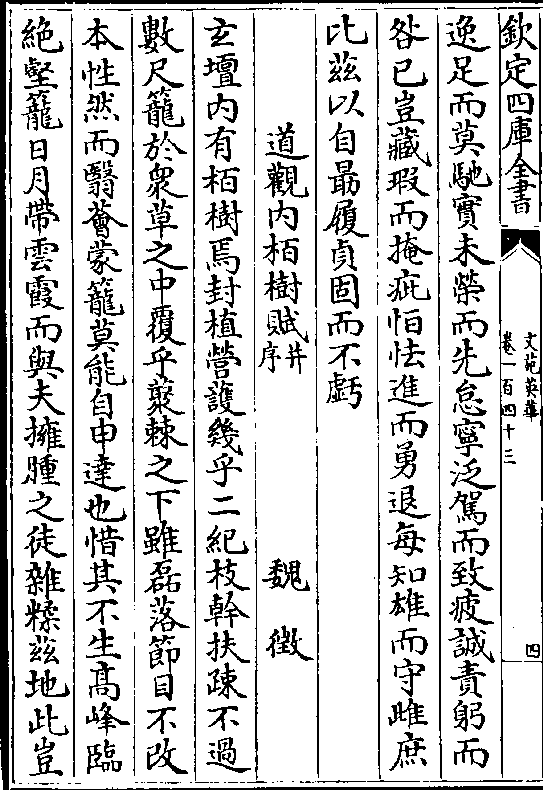 欽定四庫全書
文苑英華
卷一百四十三
四
逸足而莫馳實未榮而先怠寧泛駕而致疲誠責躬而
咎已豈藏瑕而掩疵怕怯進而勇退每知雄而守雌庶
比茲以自勗履貞固而不虧
道觀內栢樹賦并序 魏徵
玄壇內有栢樹焉封植營護幾乎二紀枝幹扶疎不過
數尺籠於衆草之中覆乎蘩棘之下雖磊落節目不改
本性然而翳薈蒙籠莫能自申達也惜其不生髙峰臨
絶壑籠日月帶雲霞而與夫擁腫之徒雜糅茲地此豈